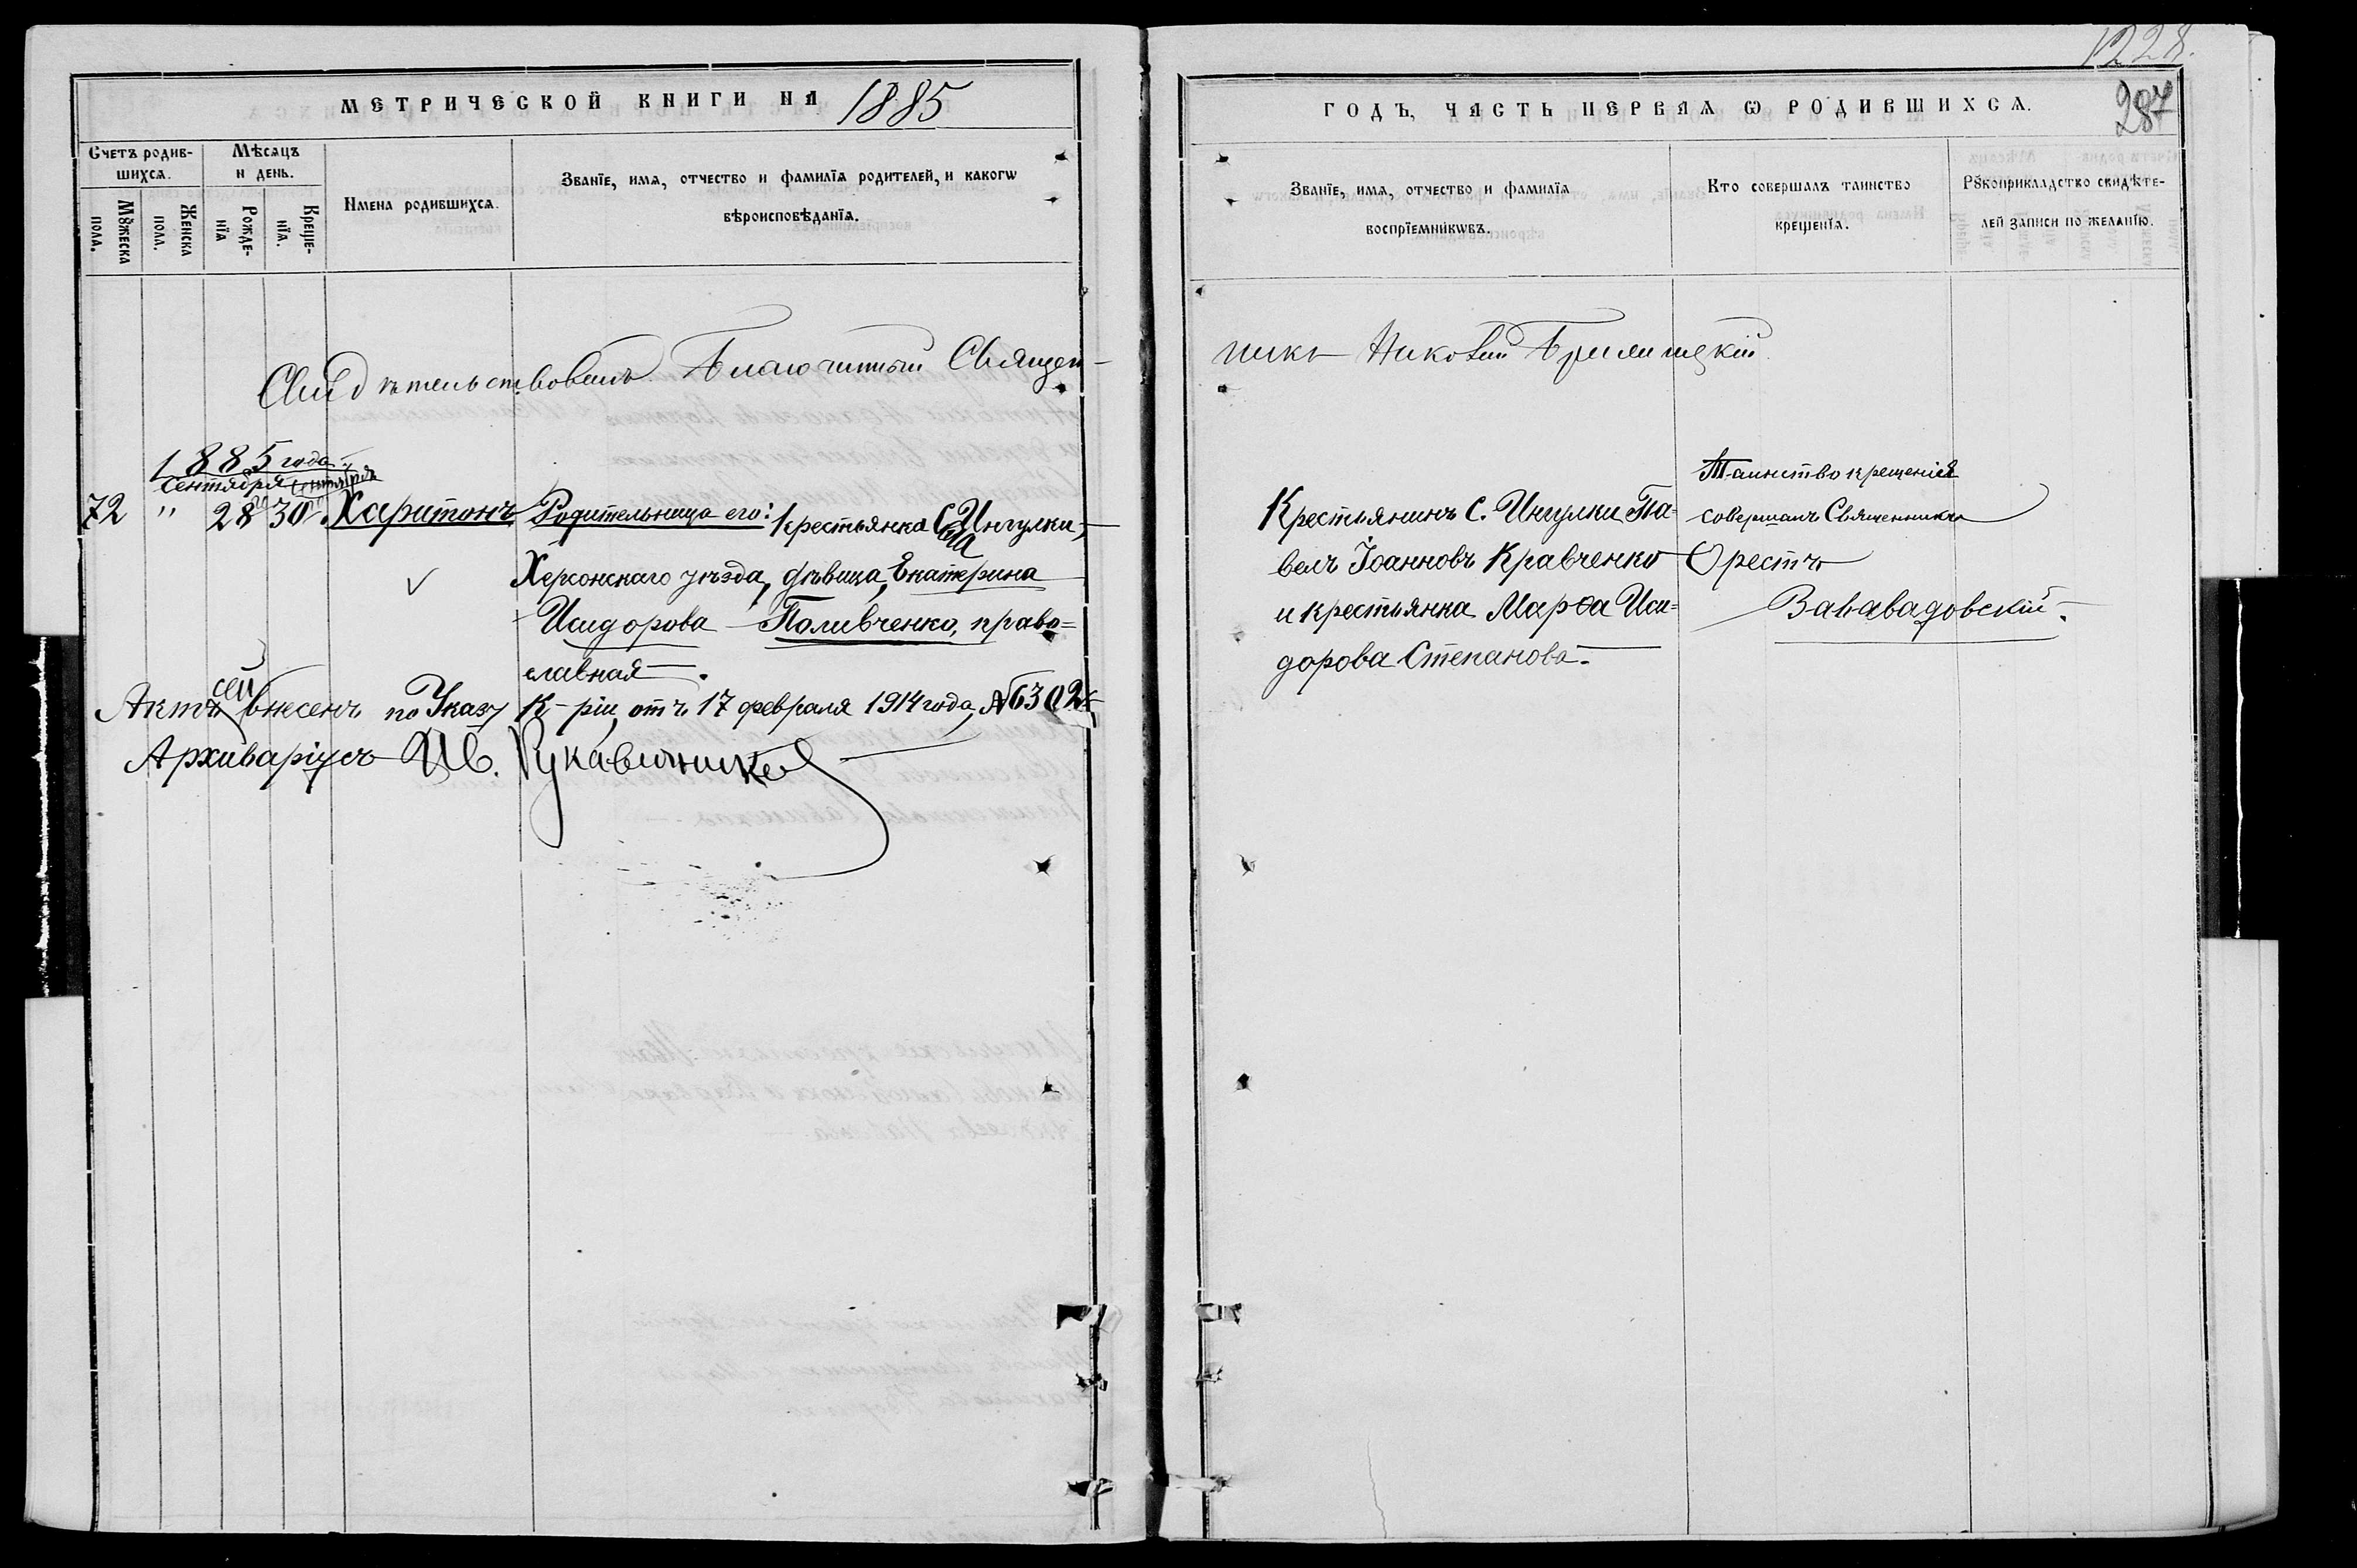 1228.
МЕТРИЧЕСКОЙ КНИГИ НА 1885
ГОДЪ, ЧАСТЬ ПЕРВАЯ Ѡ РОДИВШИХСѦ.
287
Счетъ родив-
шихсѧ.
Мꙋжеска
пола.
Женска
пола.
Мѣсѧцъ
и день.
Рожде-
нїѧ
Креще-
нїѧ.
Имена родившихсѧ.
Званїе, имѧ, отчество и фамилїѧ родителей, и какогѡ
вѣроисповѣданїѧ.
Званїе, имѧ, отчество и фамилїѧ
воспрїемникѡвъ.
Кто совершалъ таинство
крещенїѧ.
Рꙋкоприкладство свидѣте-
лей записи по желанїю.
Свидѣтельствовалъ Благочинный Священ-
никъ Николай
1885 года
Сентября
72 " 28 30. Харитонъ Родительница его: крестьянка с. Ингулки,
Херсонскаго уѣзда, дѣвица, Екатерина
Исидорова Поливченко, право=
славная.
Крестьянинъ с. Ингулки Па-
велъ Іоанновъ Кравченко
и крестьянка Марѳа Иси=
дорова Степанова.
Таинство крещенія
совершалъ Священникъ
Орестъ
Актъ сей внесенъ по Указу К-ріи, отъ 17 февраля 1914 года, №6302
Архиваріусъ Ив. Рукавишников